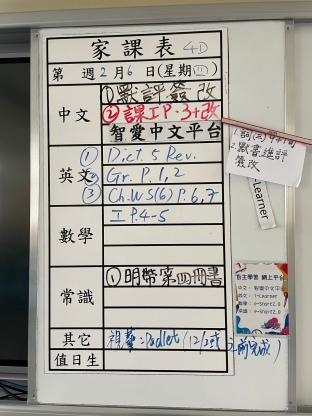 家課表 4D
第 週2月6日(星期四)
中文
①默評簽改
②課工P.3+改
智愛中文平台
英文
① Dict. 5 Rev.
② Gr. P.1, 2
③ Ch.WS(6) P.6, 7
數學
工P.4-5
常識
①明帶第四冊書
其它
視藝:Padlet (12/2或之前完成)
值日生
2.默書進評
簽改
Learner
自主學習 網上平台
中文: 智愛中文平台